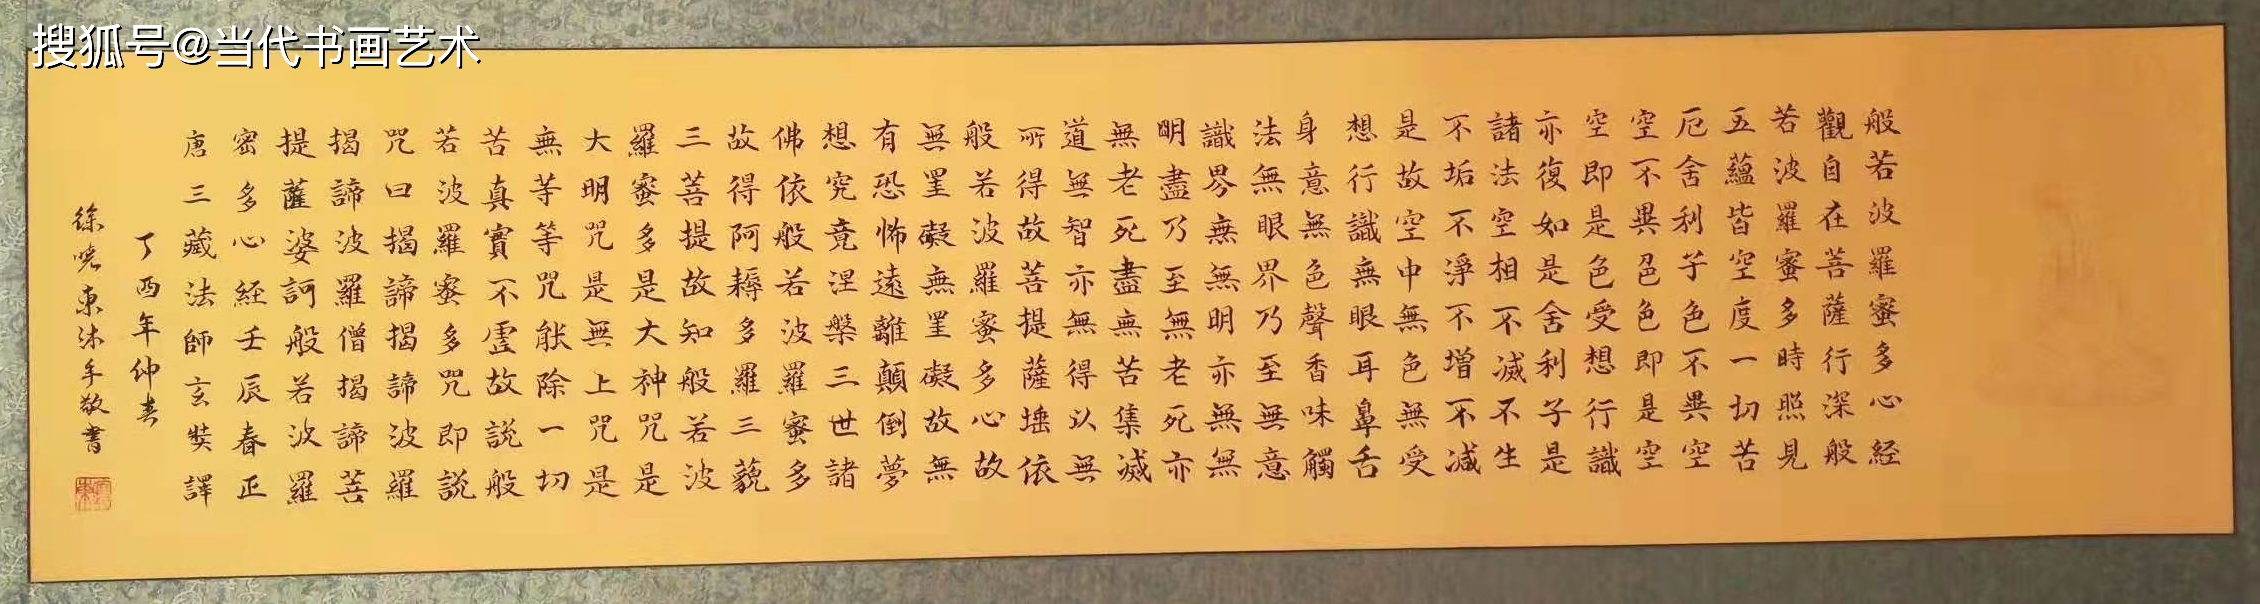 搜狐号@当代书画艺术
般若波羅蜜多心経
觀自在菩薩行深般
若波羅蜜多時照見
五蘊皆空度一切苦
厄舍利子色不異空
空不異色色即是空
空即是色受想行識
亦復如是舍利子是
諸法空相不滅不生
不垢不淨不增不減
是故空中無色無受
想行識無眼耳鼻舌
身意無色聲香味觸
法無眼界乃至無意
識界無無明亦無無
明盡乃至無老死亦
無老死盡無苦集滅
道無智亦無得以無
所得故菩提薩埵依
般若波羅蜜多心故
無罣礙無罣礙故無
有恐怖遠離顛倒夢
想究竟涅槃三世諸
佛依般若波羅蜜多
故得阿耨多羅三藐
三菩提故知般若波
羅蜜多是大神咒是
大明咒是無上咒是
無等等咒能除一切
苦真實不虛故說般
若波羅蜜多咒即説
咒曰揭諦揭諦波羅
揭諦波羅僧揭諦菩
提薩婆訶般若波羅
密多心經壬辰春正
唐三藏法師玄奘譯
丁酉年仲春
徐曉東沐手敬書